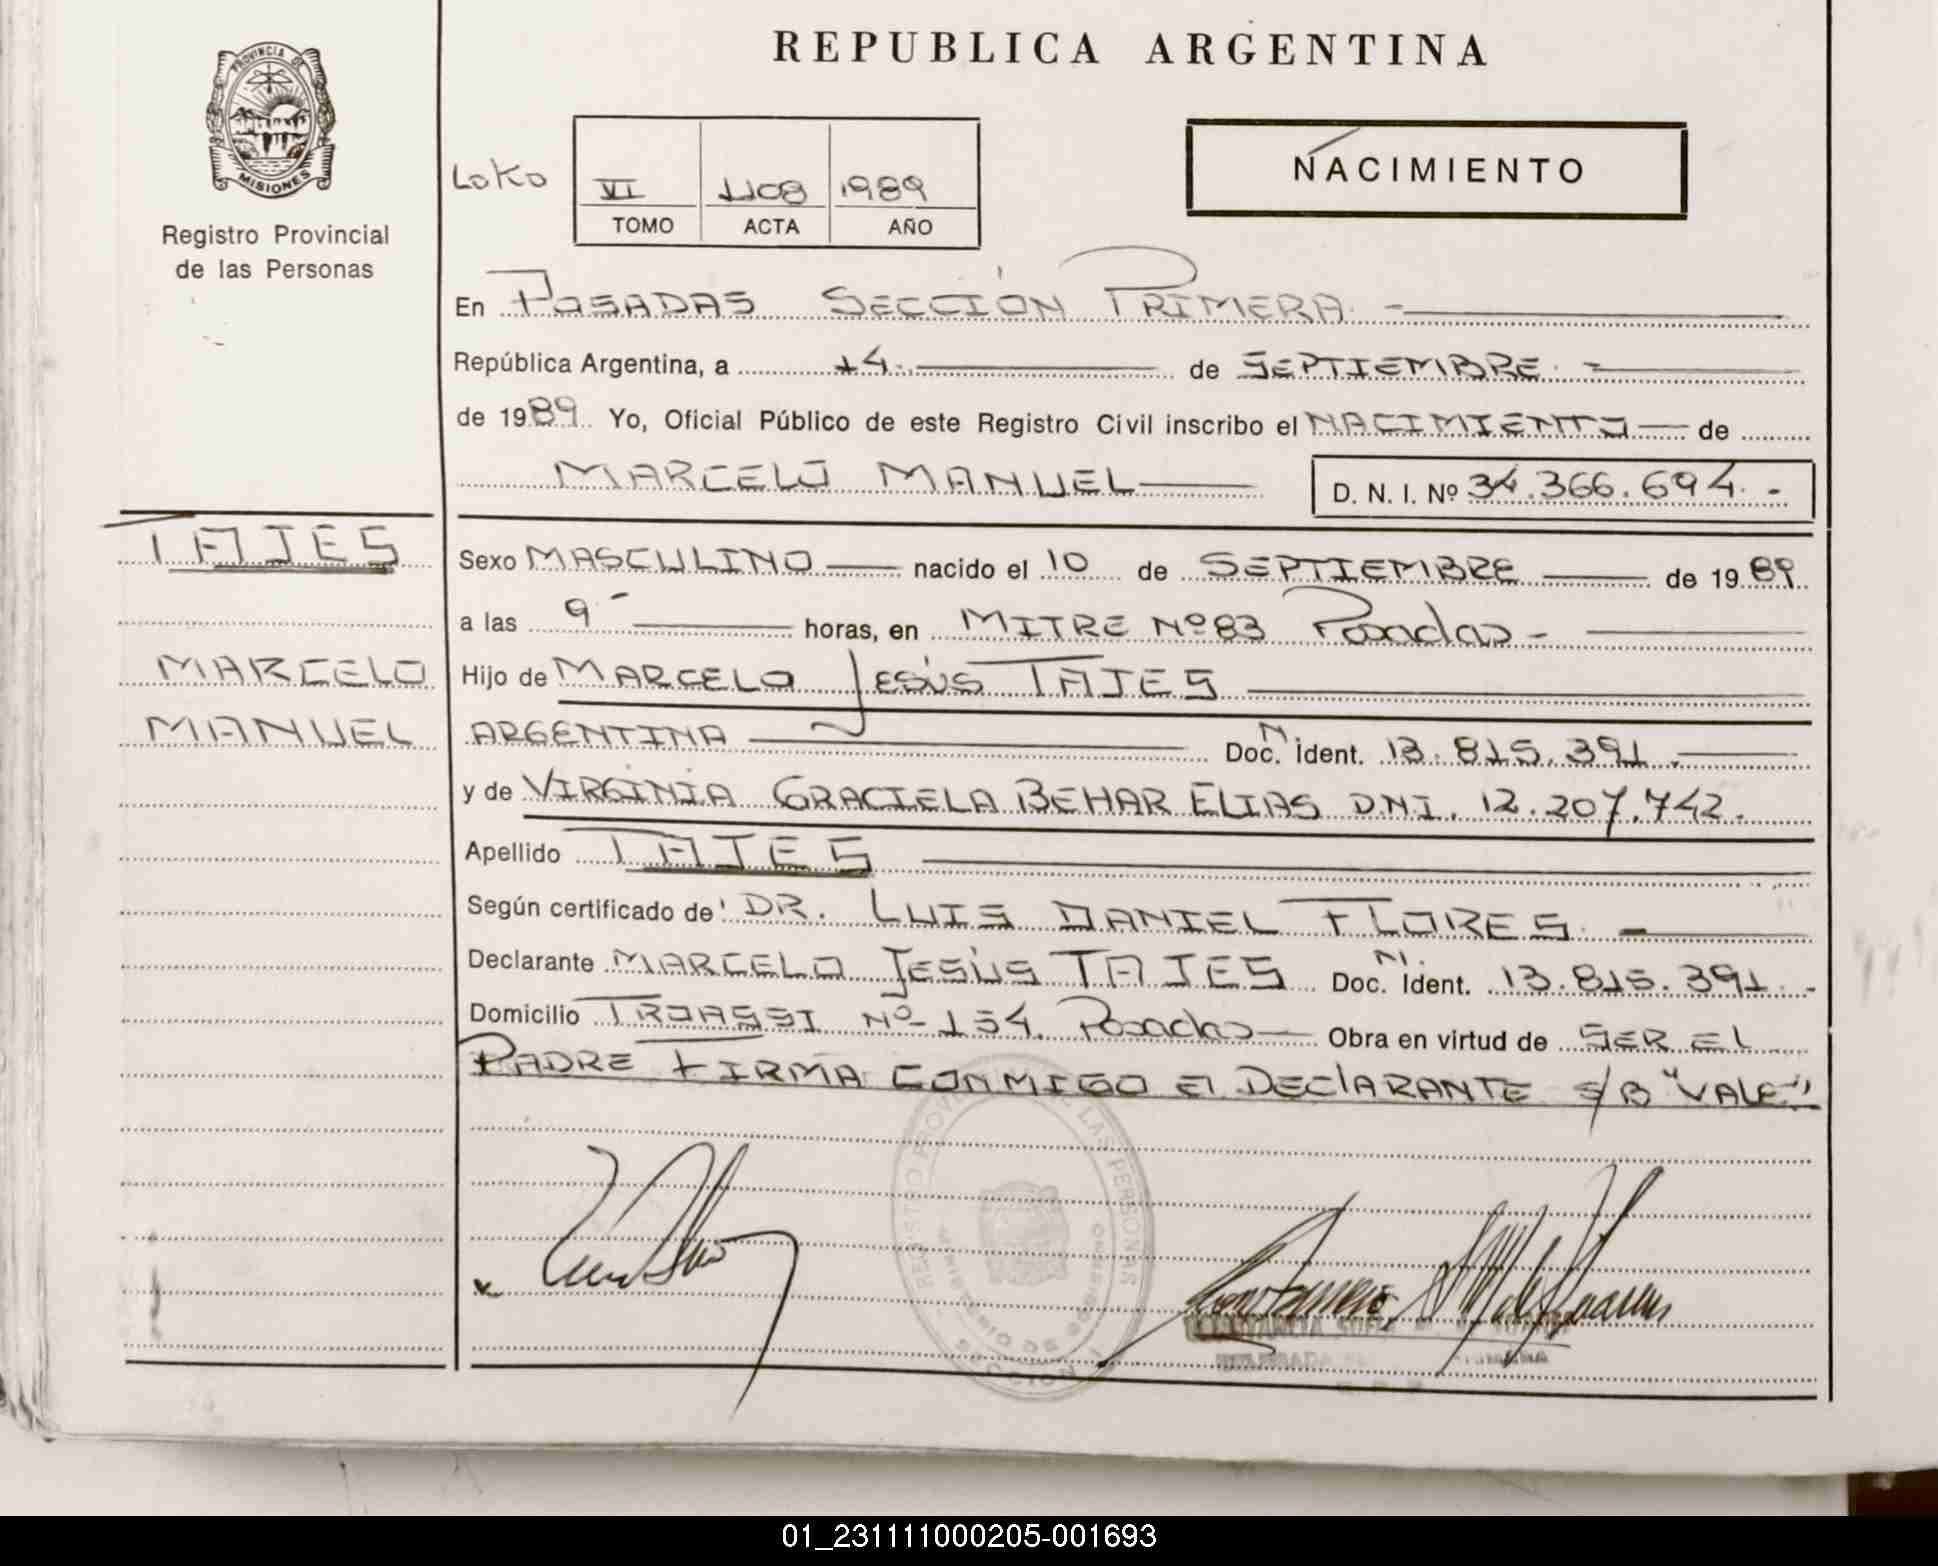 REPUBLICA ARGENTINA
PROVINCIA DE
MISIONES
Registro Provincial
de las Personas
LoKo
VI 1108 1989
TOMO ACTA AÑO
NACIMIENTO
En POSADAS SECCIÓN PRIMERA.-
República Argentina, a 14. de SEPTIEMBRE.-
de 1989. Yo, Oficial Público de este Registro Civil inscribo el NACIMIENTO de
MARCELO MANUEL D. N. I. Nº 34.366.694.-
TAJES
MARCELO
MANUEL
Sexo MASCULINO nacido el 10 de SEPTIEMBRE de 1989.
a las 9- horas, en MITRE Nº 83 Posadas-
Hijo de MARCELO JESÚS TAJES
ARGENTINA Doc. N. Ident. 13.815.391.
y de VIRGINIA GRACIELA BEHAR ELIAS D.N.I. 12.207.742.
Apellido TAJES
Según certificado de DR. LUIS DANIEL FLORES.-
Declarante MARCELO JESÚS TAJES Doc. N. Ident. 13.815.391.-
Domicilio Nº 154. Posadas Obra en virtud de SER EL
PADRE FIRMA CONMIGO El DEClARANTE S/B "VALE"
REGISTRO PROVINCIAL DE LAS PERSONAS
MINISTERIO DE GOBIERNO
SECCION 1
01_231111000205-001693